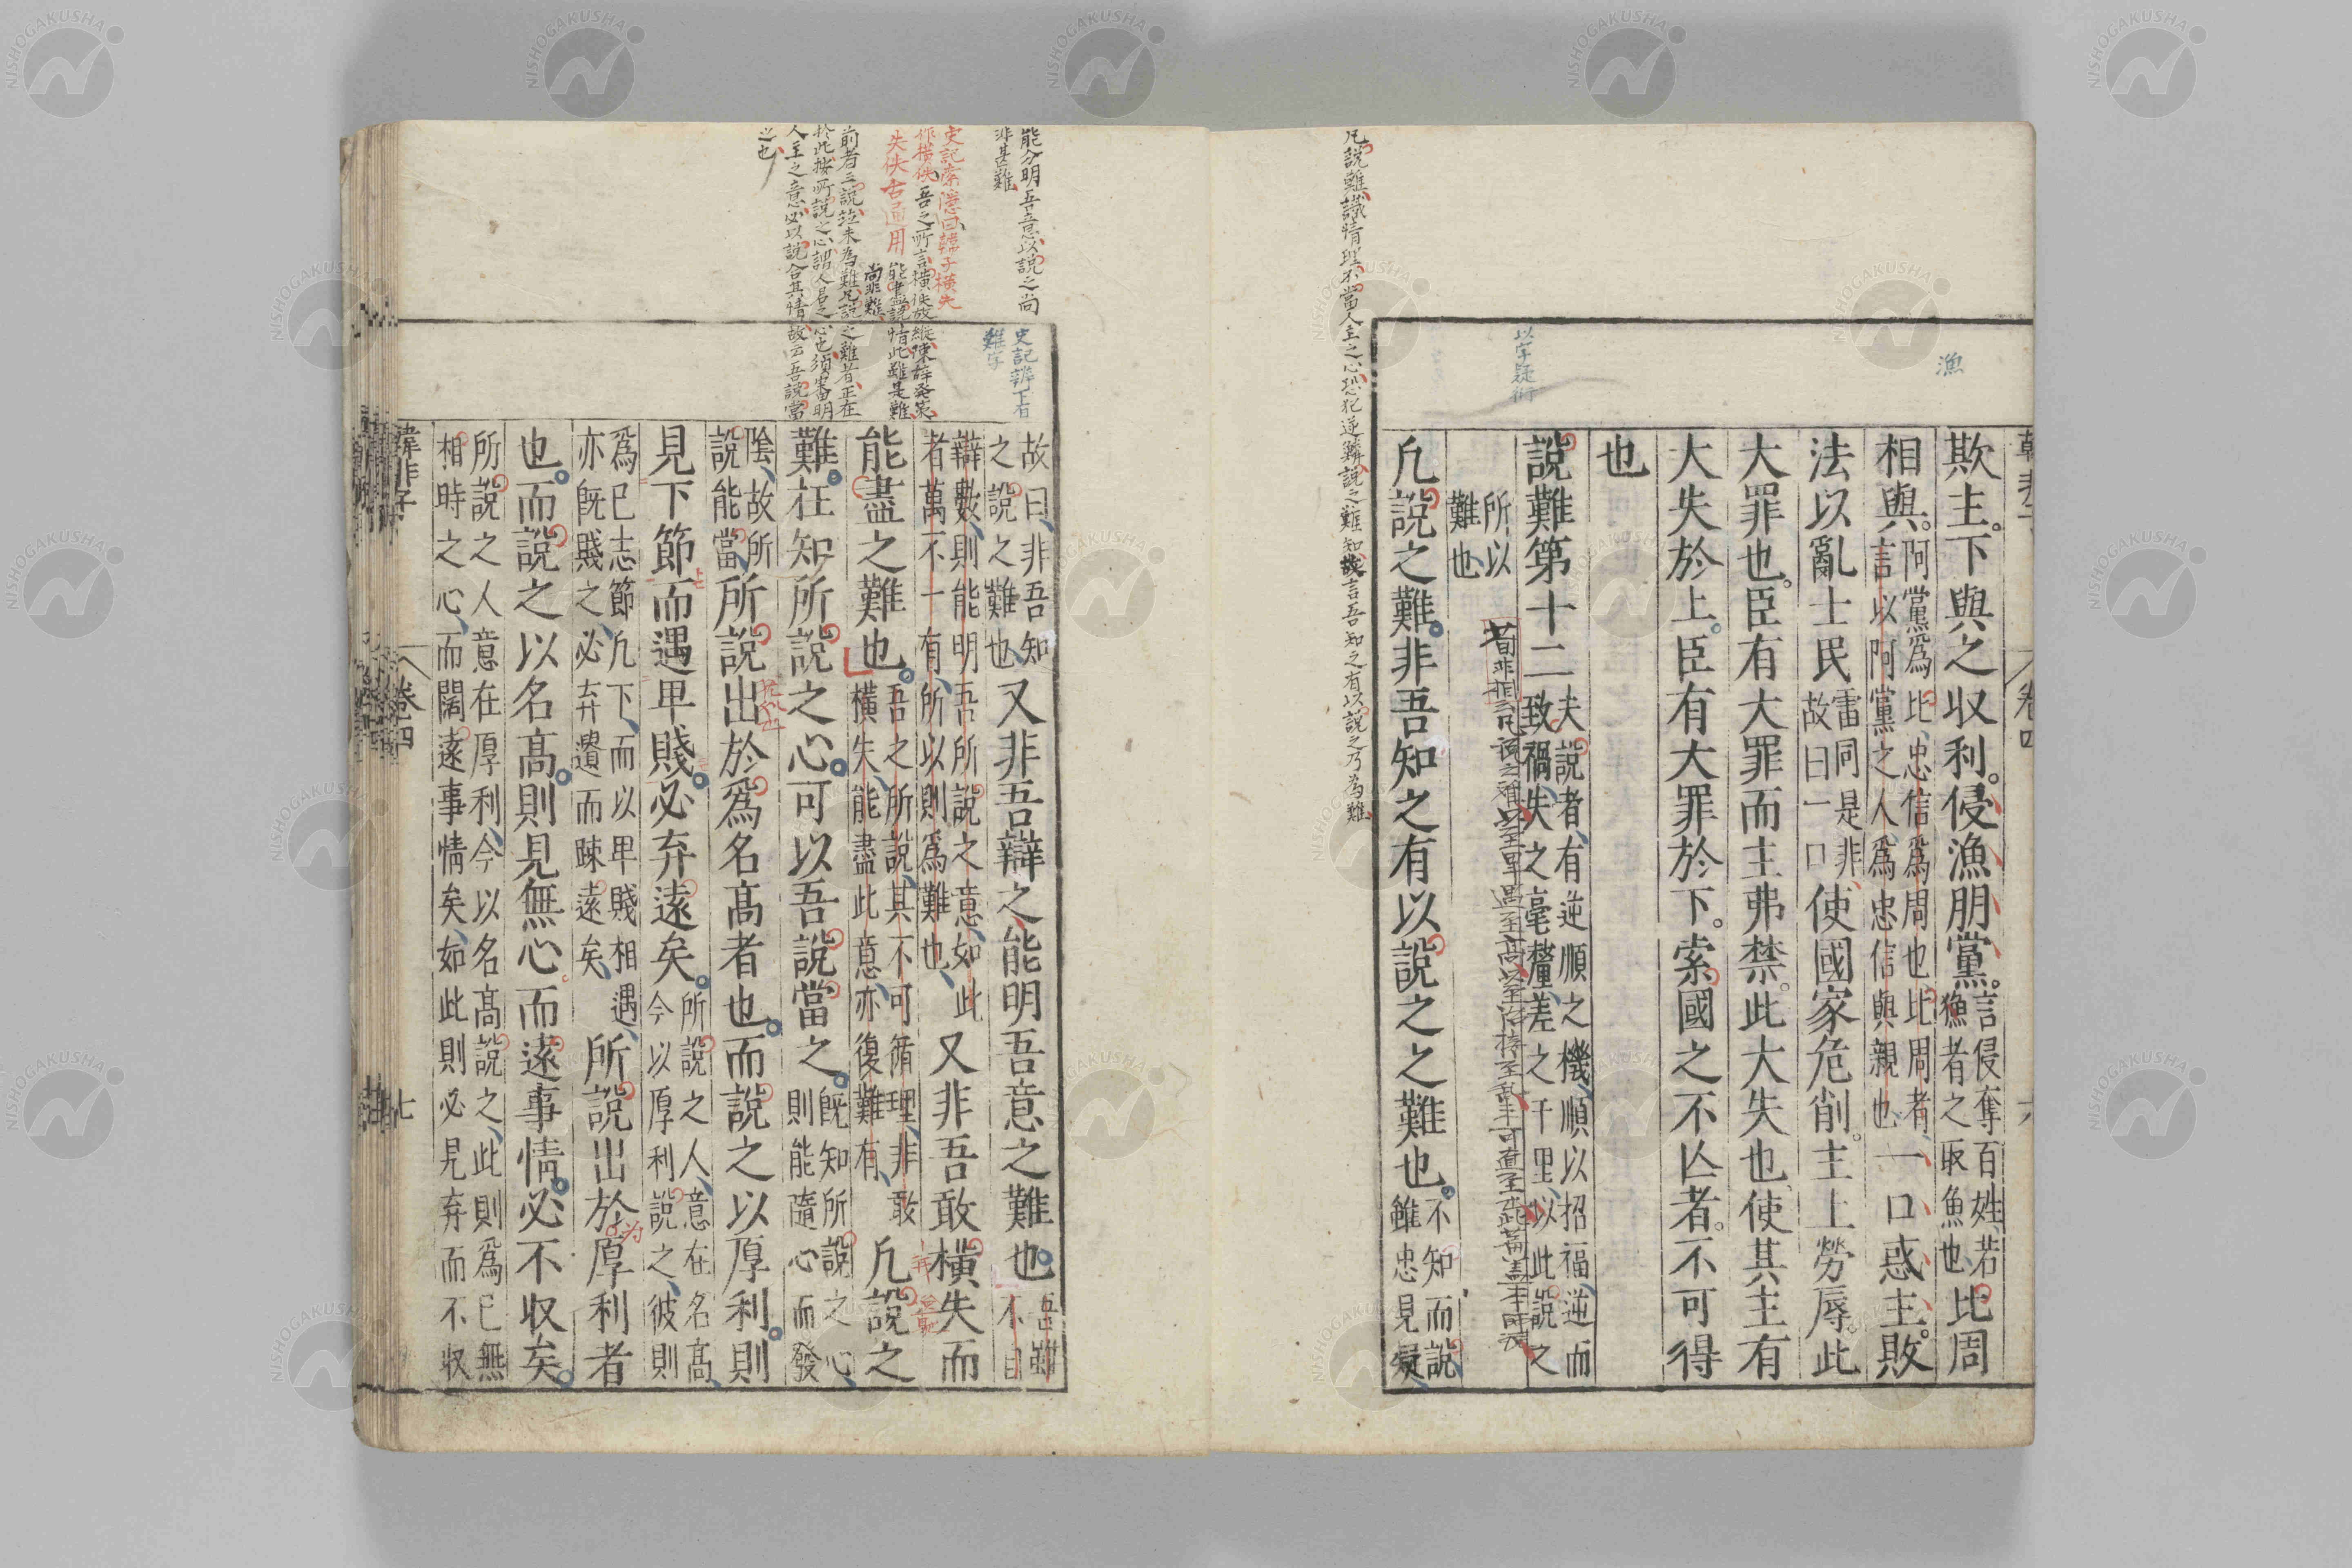 漁
以字疑衍
欺主。下與之收利。侵漁朋黨。言侵奪百姓、若漁者之取魚也、比周
相與。阿黨爲比、忠信爲周也、比周者、言以阿黨之人、爲忠信與親也、一口惑主。敗
法以亂士民故曰一口雷同是非、使國家危削。主上勞辱。此
大罪也。臣有大罪而主弗禁。此大失也使其主有
大失於上。臣有大罪於下。索國之不亾者。不可得
也
說難第十二夫說者、有逆順之機、順以招福、逆而致禍、失之毫釐、差之千里、以此說之
所以難也
凡說之難。非吾知之有以說之之難也。不知而說、雖忠見疑、
凡說難、識情理不當人主之心、恐犯逆鱗、說之難知、故言吾知之有以說之乃爲難
能分明吾意以說之尚
非甚難
史記索隱曰韓子橫失
作橫佚、吾之所言橫佚放縱、陳辞發策
失佚古通用 能盡說情此雖是難
尚非難
前者三說並未為難凡說之難者正在
於此按所說之心謂人君之心也須審明
人主之意必以說合其情故云吾說當
之也
史記辨下有
難字
故曰、非吾知之說之難也、又非吾辯之、能明吾意之難也吾雖不自
辯數、則能明吾所說之意、如此者萬不一有、所以則爲難也、又非吾敢橫失而
能盡之難也。吾之所說、其不可循理、非敢橫失、能盡此意、亦復難有、凡說之
難。在知所說之心。可以吾說當之。旣知所說之心、則能隨心而發
陰、故所說能當、所說出於爲名高者也。而說之以厚利。則
見下節而遇卑賤。必弃遠矣。所說之人、意在名高、今以厚利說之、彼則
爲已志節凡下、而以卑賤相遇、亦旣賤之、必弃遺而疎遠矣、所說出於厚利者
也。而說之以名高。則見無心而遠事情。必不收矣。
所說之人意在厚利、今以名高說之、此則爲已無相時之心、而闊遠事情矣、如此則必見弃而不收
韓非子 卷四 七